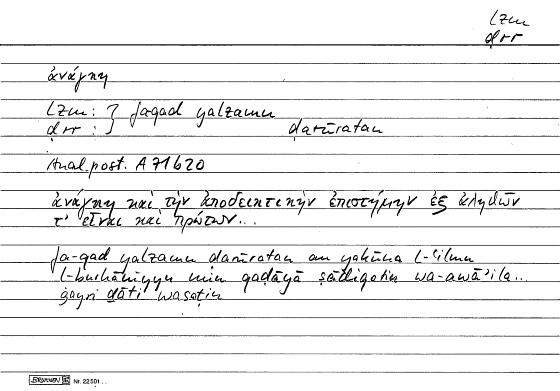 lzm
ḍrr
ἀνάγκη
lzm : } faqad yalzamu
ḍrr : } ḍarūratan
Anal. post. A 71 b 20
ἀνάγκη καὶ τὴν ἀποδεικτικὴν ἐπιστήμην ἐξ ἀληθῶν
τ' εἶναι καὶ πρώτων...
fa-qad yalzamu ḍarūratan an yakūna l-ʿilmu
l-burhāniyyu min qaḍāyā ṣādiqatin wa-awāʾila...
ġayri ḏāti wasaṭin
BRUNNEN Nr. 22501 ..